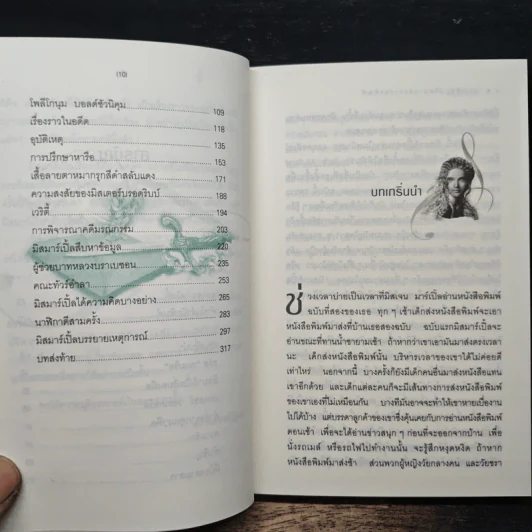 (10)
โพลีโกนุม บอลด์ชัวนิคุม 109
เรื่องราวในอดีต 118
อุบัติเหตุ 135
การปรึกษาหารือ 153
เสื้อลายตาหมากรุกสีดำสลับแดง 171
ความสงสัยของมิสเตอร์บรอดริบบ์ 188
เวริตี้ 194
การพิจารณาคดีมรณกรรม 203
มิสมาร์เปิ้ลสืบหาข้อมูล 220
ผู้ช่วยบาทหลวงบราเบซอน 235
คณะทัวร์อำลา 253
มิสมาร์เปิ้ลได้ความคิดบางอย่าง 265
นาฬิกาตีสามครั้ง 283
มิสมาร์เปิ้ลบรรยายเหตุการณ์ 297
บทส่งท้าย 317
บทเกริ่นนำ
ช่วงเวลาบ่ายเป็นเวลาที่มิสเจน มาร์เปิ้ลอ่านหนังสือพิมพ์
ฉบับที่สองของเธอ ทุก ๆ เช้าเด็กส่งหนังสือพิมพ์จะเอา
หนังสือพิมพ์มาส่งที่บ้านเธอสองฉบับ ฉบับแรกมิสมาร์เปิ้ลจะ
อ่านขณะที่ทานน้ำชายามเช้า ถ้าหากว่าเขาเอามันมาส่งตรงเวลา
นะ เด็กส่งหนังสือพิมพ์นั้น บริหารเวลาของเขาได้ไม่ค่อยดี
เท่าไหร่ นอกจากนี้ บางครั้งก็ยังมีเด็กคนอื่นมาส่งหนังสือแทน
เขาอีกด้วย และเด็กแต่ละคนก็จะมีเส้นทางการส่งหนังสือพิมพ์
ของเขาเองที่ไม่เหมือนกัน บางทีมันอาจจะทำให้เขาหายเบื่องาน
ไปได้บ้าง แต่บรรดาลูกค้าของเขาซึ่งคุ้นเคยกับการอ่านหนังสือพิมพ์
ตอนเช้า เพื่อจะได้อ่านข่าวสนุก ๆ ก่อนที่จะออกจากบ้าน เพื่อ
นั่งรถเมล์ หรือรถไฟไปทำงานนั้น จะรู้สึกหงุดหงิด ถ้าหาก
หนังสือพิมพ์มาส่งช้า ส่วนพวกผู้หญิงวัยกลางคน และวัยชรา